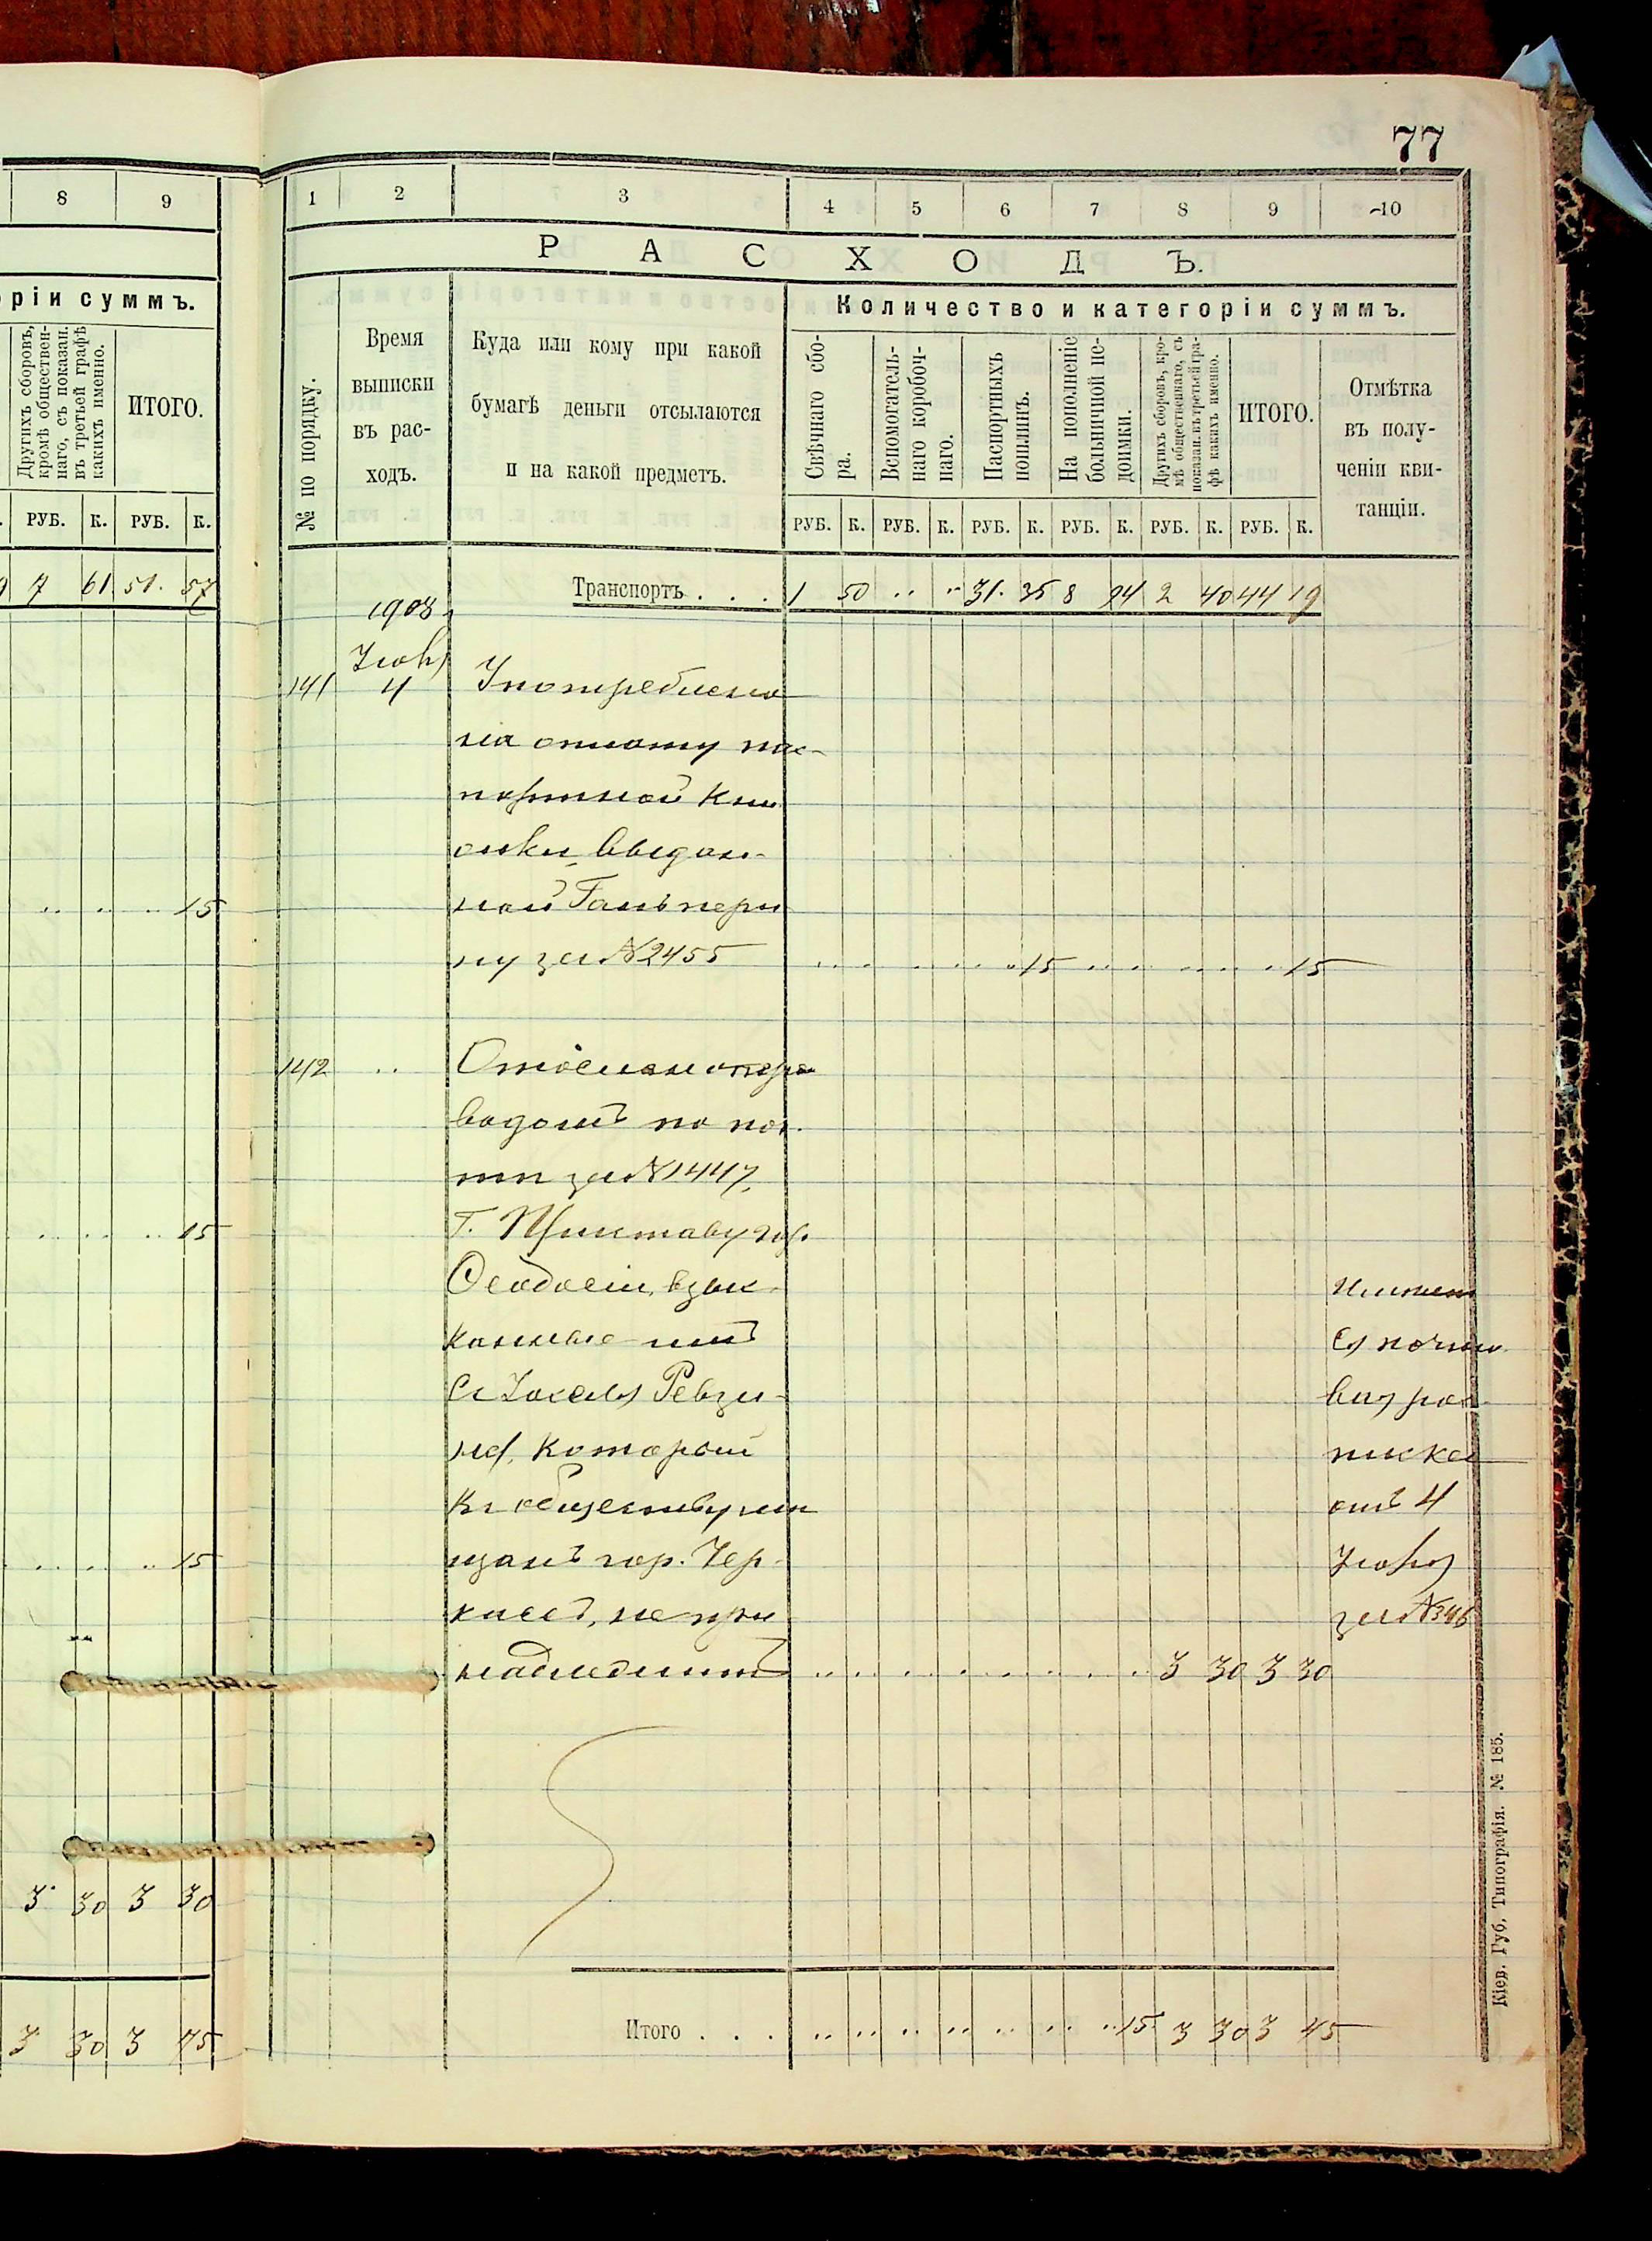 77
8 9
оріи суммъ.
Другихъ сборовъ,
кромѣ обществен-
наго, съ показан.
въ третьей графѣ
какихъ именно.
ИТОГО.
РУБ. К. РУБ. К.
7 61 51. 57
15
15
15
3 30 3 30
3 30 3 75
1 2 3 4 5 6 7 8 9 10
РАСХОДЪ.
№ по порядку.
Время
выписки
въ рас-
ходъ.
Куда или кому при какой
бумагѣ деньги отсылаются
и на какой предметъ.
Количество и категоріи суммъ.
Свѣчнаго сбо-
ра.
Вспомогатель-
наго коробоч-
наго.
Паспортныхъ
пошлинъ.
На пополненіе
больничной не-
доимки.
Другихъ сборовъ, кро-
мѣ общественнаго, съ
показан. въ третьей гра-
фѣ какихъ именно.
ИТОГО.
Отмѣтка
въ полу-
ченіи кви-
танціи.
РУБ. К. РУБ. К. РУБ. К. РУБ. К. РУБ. К. РУБ. К.
Транспортъ . . . 1 50 .. .. 31. 35 8 94 2 40 44 19
1908
Іюня
141 4 Употреблено
на оплату пас-
портной кни
жки, выдан-
ной Гальпери
ну за №2455 15 15
142 .. Отослано пере
водомъ по поч.
тѣ за №1447,
Г. Приставу гор.
Ѳеодосіи, взыс
канные имъ
съ Іоселя Ревзи-
на, который
къ обществу мѣ
щанъ гор. Чер-
кассъ, не при
надлежитъ 3 30 3 30
Имѣет
ся почто
вая рос
писка
отъ 4
Іюня
за №346
Итого . . . 15 3 30 3 45
Кіев. Губ. Типографія. № 185.